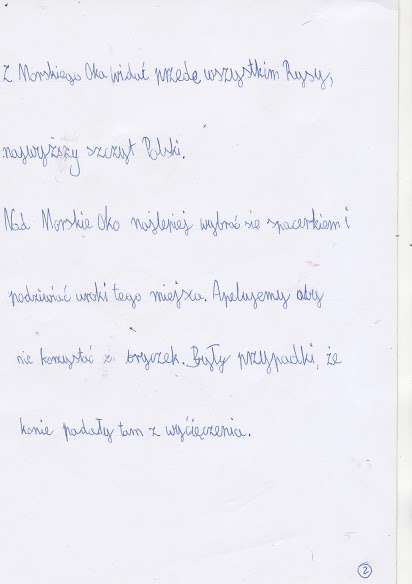 Z Morskiego Oka widać przede wszystkim Rysy,
najwyższy szczyt Polski.
Nad Morskie Oko najlepiej wybrać sie spacerkiem i
podziwiać uroki tego miejsca. Apelujemy aby
nie korzystać z bryczek. Były przypadki, że
konie padały tam z wyćięczenia.
2